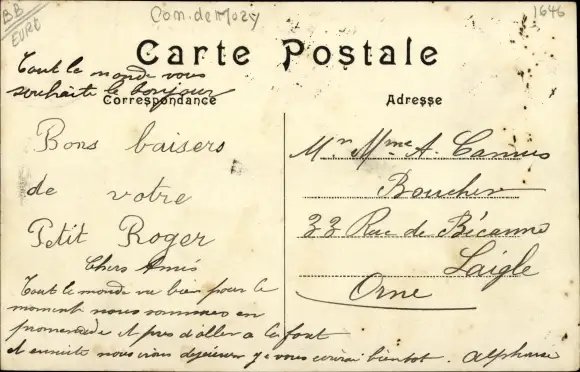 BB
EURE
Com. de Mozy
1646
Carte Postale
Tout le monde vous
souhaite le bonjour
Correspondance
Bons baisers
de votre
Petit Roger
Chers Amis
Tout le monde va bien pour le
moment nous sommes en
promenade et pres d'aller a la foret
et ensuite nous irons dejeuner je vous ecrirai bientot. Alphonse
Adresse
Mr Mme A. Camus
Boucher
33 Rue de Bécanne
Laigle
Orne